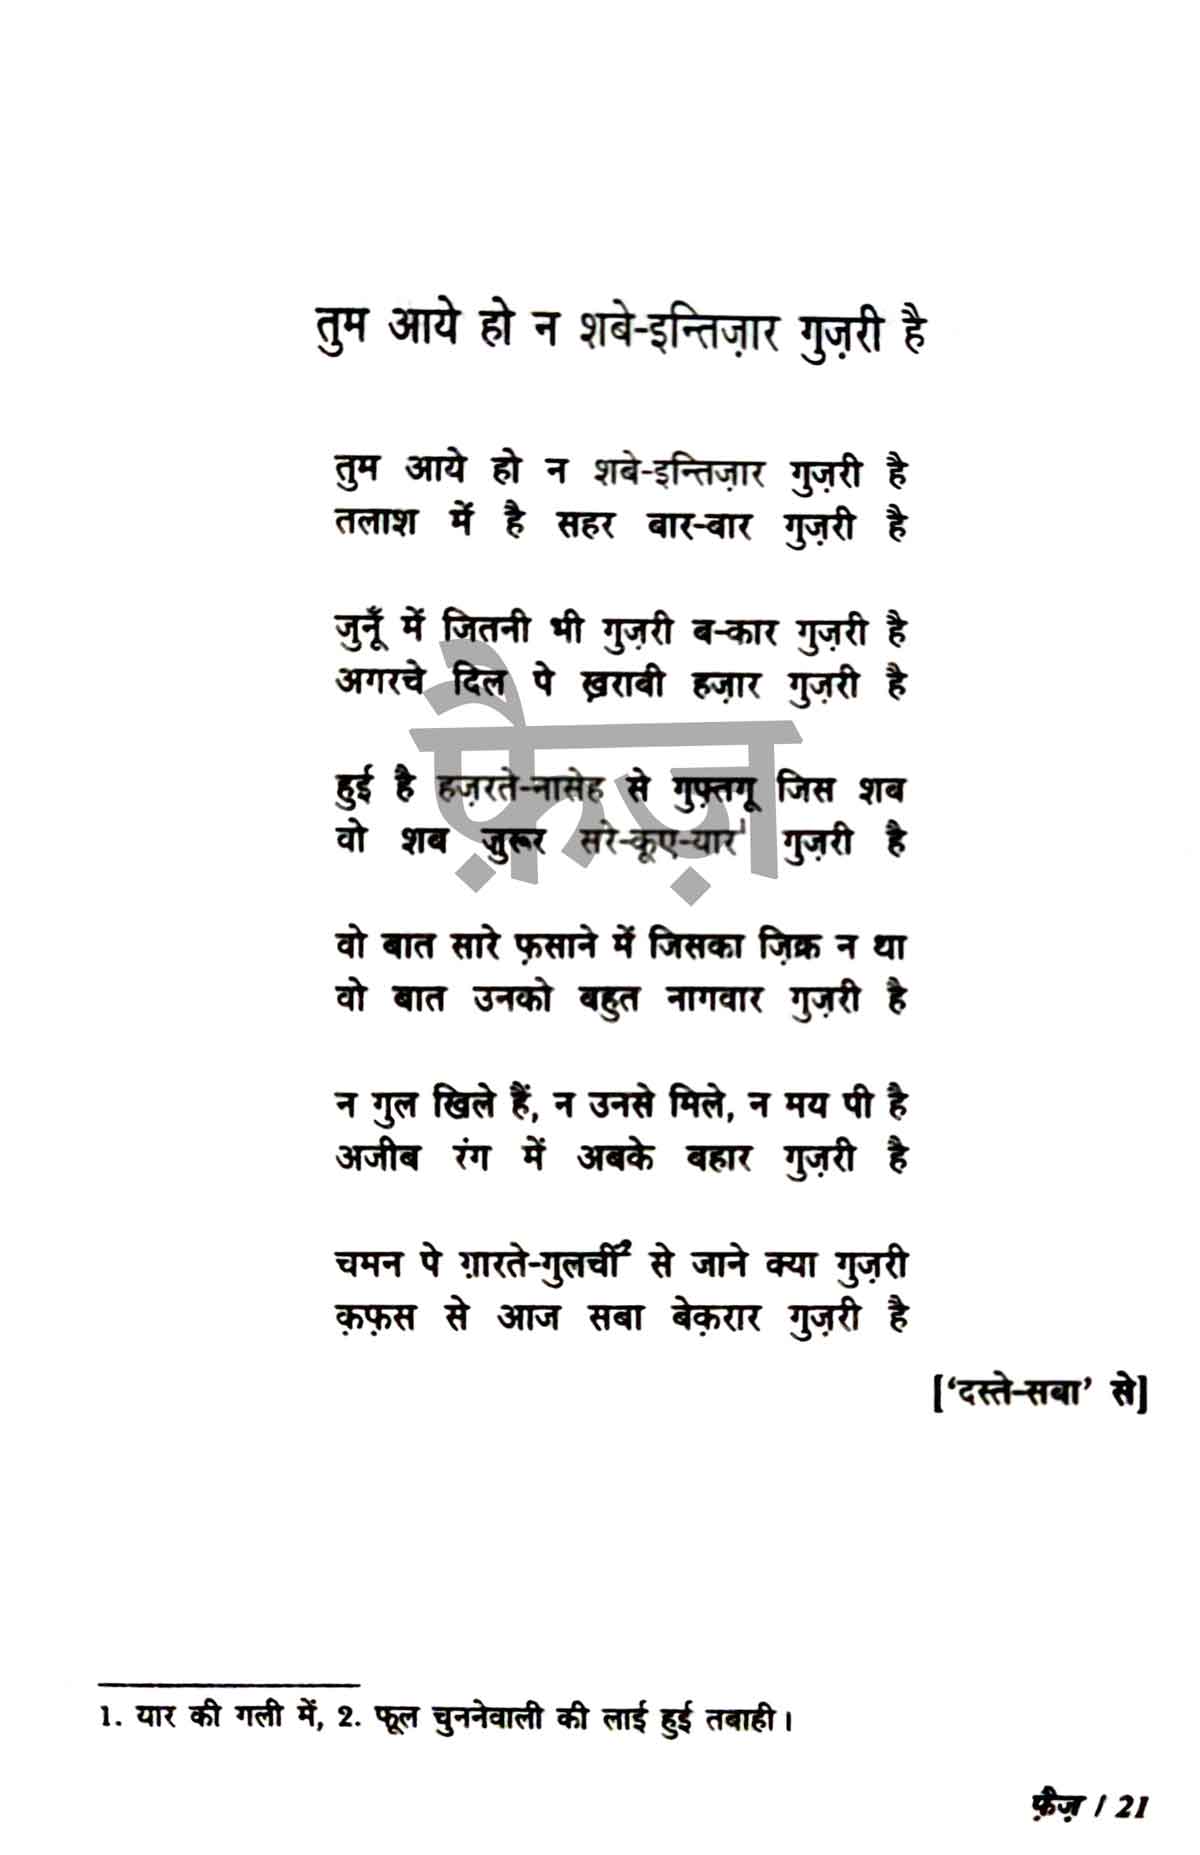 तुम आये हो न शबे-इन्तिज़ार गुज़री है
तुम आये हो न शबे-इन्तिज़ार गुज़री है
तलाश में है सहर बार-बार गुज़री है
जुनूँ में जितनी भी गुज़री ब-कार गुज़री है
अगरचे दिल पे ख़राबी हज़ार गुज़री है
फ़ैज़
हुई है हज़रते-नासेह से गुफ़्तगू जिस शब
वो शब ज़ुरूर सरे-कूए-यार¹ गुज़री है
वो बात सारे फ़साने में जिसका ज़िक्र न था
वो बात उनको बहुत नागवार गुज़री है
न गुल खिले हैं, न उनसे मिले, न मय पी है
अजीब रंग में अबके बहार गुज़री है
चमन पे ग़ारते-गुलचीं² से जाने क्या गुज़री
क़फ़स से आज सबा बेक़रार गुज़री है
['दस्ते-सबा' से]
1. यार की गली में, 2. फूल चुननेवाली की लाई हुई तबाही।
फ़ैज़ / 21